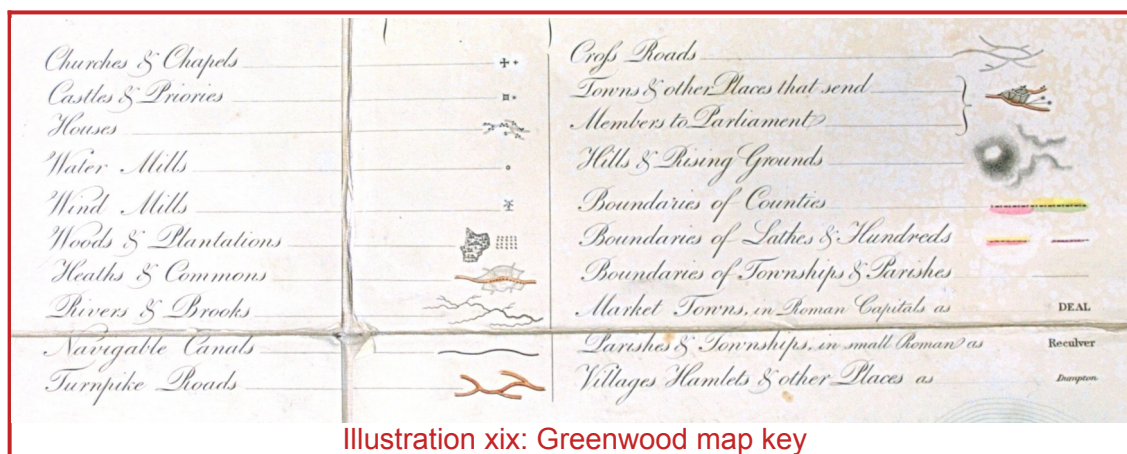 Churches & Chapels
Castles & Priories
Houses
Water Mills
Wind Mills
Woods & Plantations
Heaths & Commons
Rivers & Brooks
Navigable Canals
Turnpike Roads
Croſs Roads
Towns & other Places that send
Members to Parliament
Hills & Rising Grounds
Boundaries of Counties
Boundaries of Lathes & Hundreds
Boundaries of Townships & Parishes
Market Towns, in Roman Capitals as DEAL
Parishes & Townships, in small Roman as Reculver
Villages Hamlets & other Places as Dumpton
Illustration xix: Greenwood map key